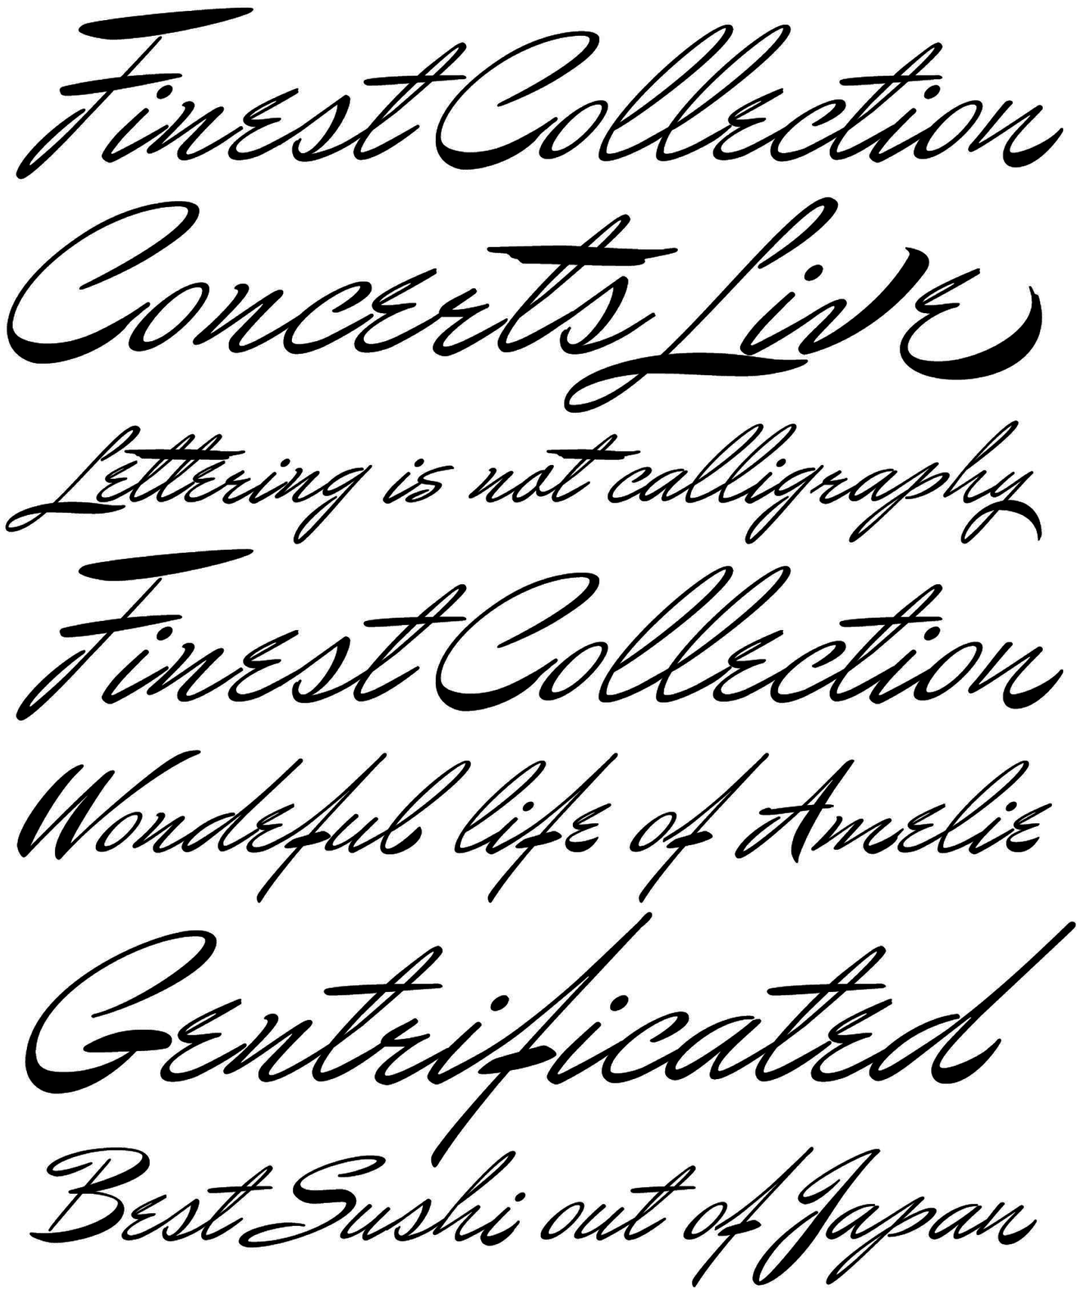 Finest Collection
Concerts Live
Lettering is not calligraphy
Finest Collection
Wondeful life of Amelie
Gentrificated
Best Sushi out of Japan